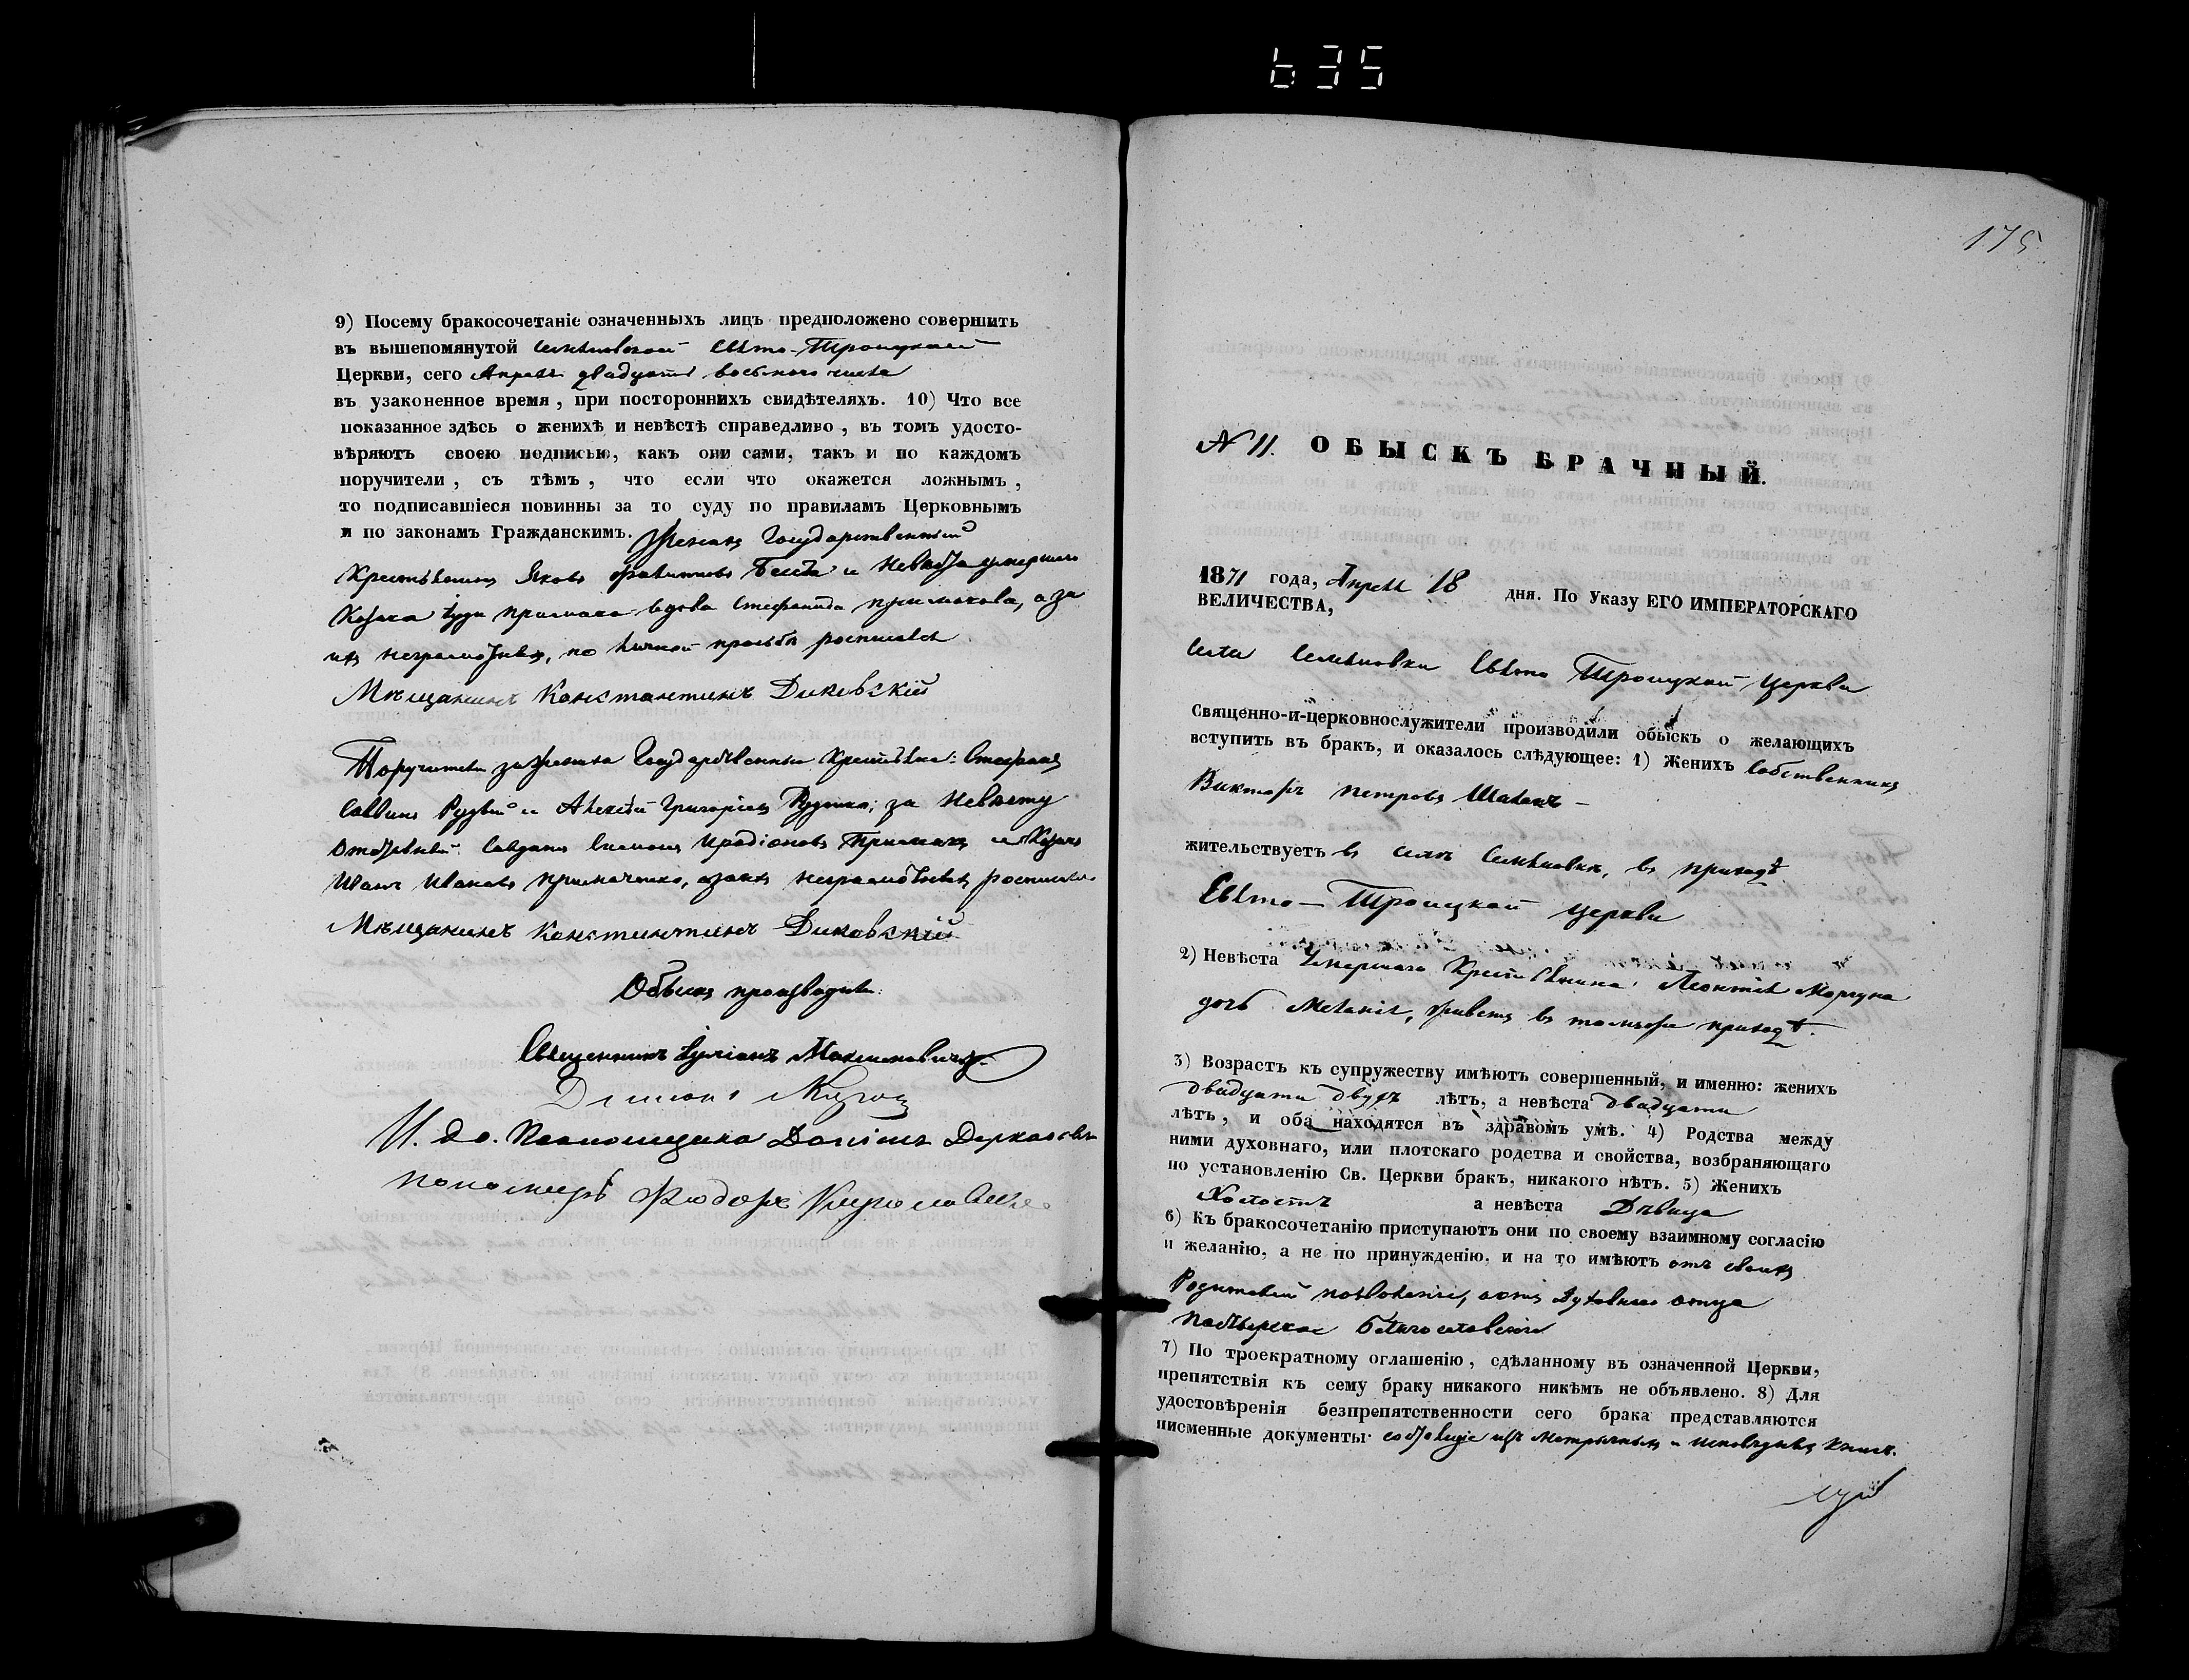 635
9) Посему бракосочетаніе означенныхъ лицъ предположено совершить
въ вышепомянутой Семеновской Свято-Троицкой
Церкви, сего Апреля двадцать восьмого числа
въ узаконенное время, при постороннихъ свидѣтеляхъ. 10) Что все
показанное здѣсь о женихѣ и невѣстѣ справедливо, въ томъ удосто-
вѣряютъ своею подписью, какъ они сами, такъ и по каждомъ
поручители, съ тѣмъ, что если что окажется ложнымъ,
то подписавшіеся повинны за то суду по правиламъ Церковнымъ
и по законамъ Гражданскимъ. Женихъ Государственный
Крестьянинъ Яковъ и Невѣста умершаго
Козака Примака вдова Стефанида Примакова, а за
ихъ неграмотных, по личной просьбѣ росписался
Мѣщанинъ Константинъ Диковскій
Поручители за жениха Государственныи Крестьяне: Стефанъ
Саввинъ и Алексѣй Григоріевъ за Невѣсту
Отставный Солдатъ Симонъ Иродіоновъ Примакъ и Козакъ
Иванъ Ивановъ Примаченко, за нихъ неграмотныхъ росписался
Мѣщанинъ Константинъ Диковскій
Обыскъ производили:
Священникъ Іуліанъ Максимовичъ
Діаконъ
И. до. Псаломщика Даніилъ
Пономарь Фіодоръ
175
№ 11. ОБЫСКЪ БРАЧНЫЙ.
1871 года, Апреля 18 дня. По Указу ЕГО ИМПЕРАТОРСКАГО
ВЕЛИЧЕСТВА,
Села Семеновки Свято Троицкой Церкви
Священно-и-церковнослужители производили обыскъ о желающихъ
вступить въ бракъ, и оказалось слѣдующее: 1) Женихъ Собственникъ
Викторъ Петровъ
жительствуетъ въ селѣ Семеновкѣ, въ приходѣ
Свято-Троицкой Церкви
2) Невѣста Умершаго Крестьянина Леонтія Моргуна
дочь Меланія, живетъ въ томъже приходѣ.
3) Возрастъ къ супружеству имѣютъ совершенный, и именно: женихъ
двадцати двухъ лѣтъ, а невѣста двадцати
лѣтъ, и оба находятся въ здравомъ умѣ. 4) Родства между
ними духовнаго, или плотскаго родства и свойства, возбраняющаго
по установленію Св. Церкви бракъ, никакого нѣтъ. 5) Женихъ
Холостъ а невѣста Дѣвица
6) Къ бракосочетанію приступаютъ они по своему взаимному согласію
и желанію, а не по принужденію, и на то имѣютъ отъ своихъ
Родителей позволеніе, а отъ Духовнаго отца
Пастырское благословеніе
7) По троекратному оглашенію, сдѣланному въ означенной Церкви,
препятствія къ сему браку никакого никѣмъ не объявлено. 8) Для
удостовѣренія безпрепятственности сего брака представляются
писменные документы: состоящіе изъ метрычныхъ и исповѣдныхъ книгъ.